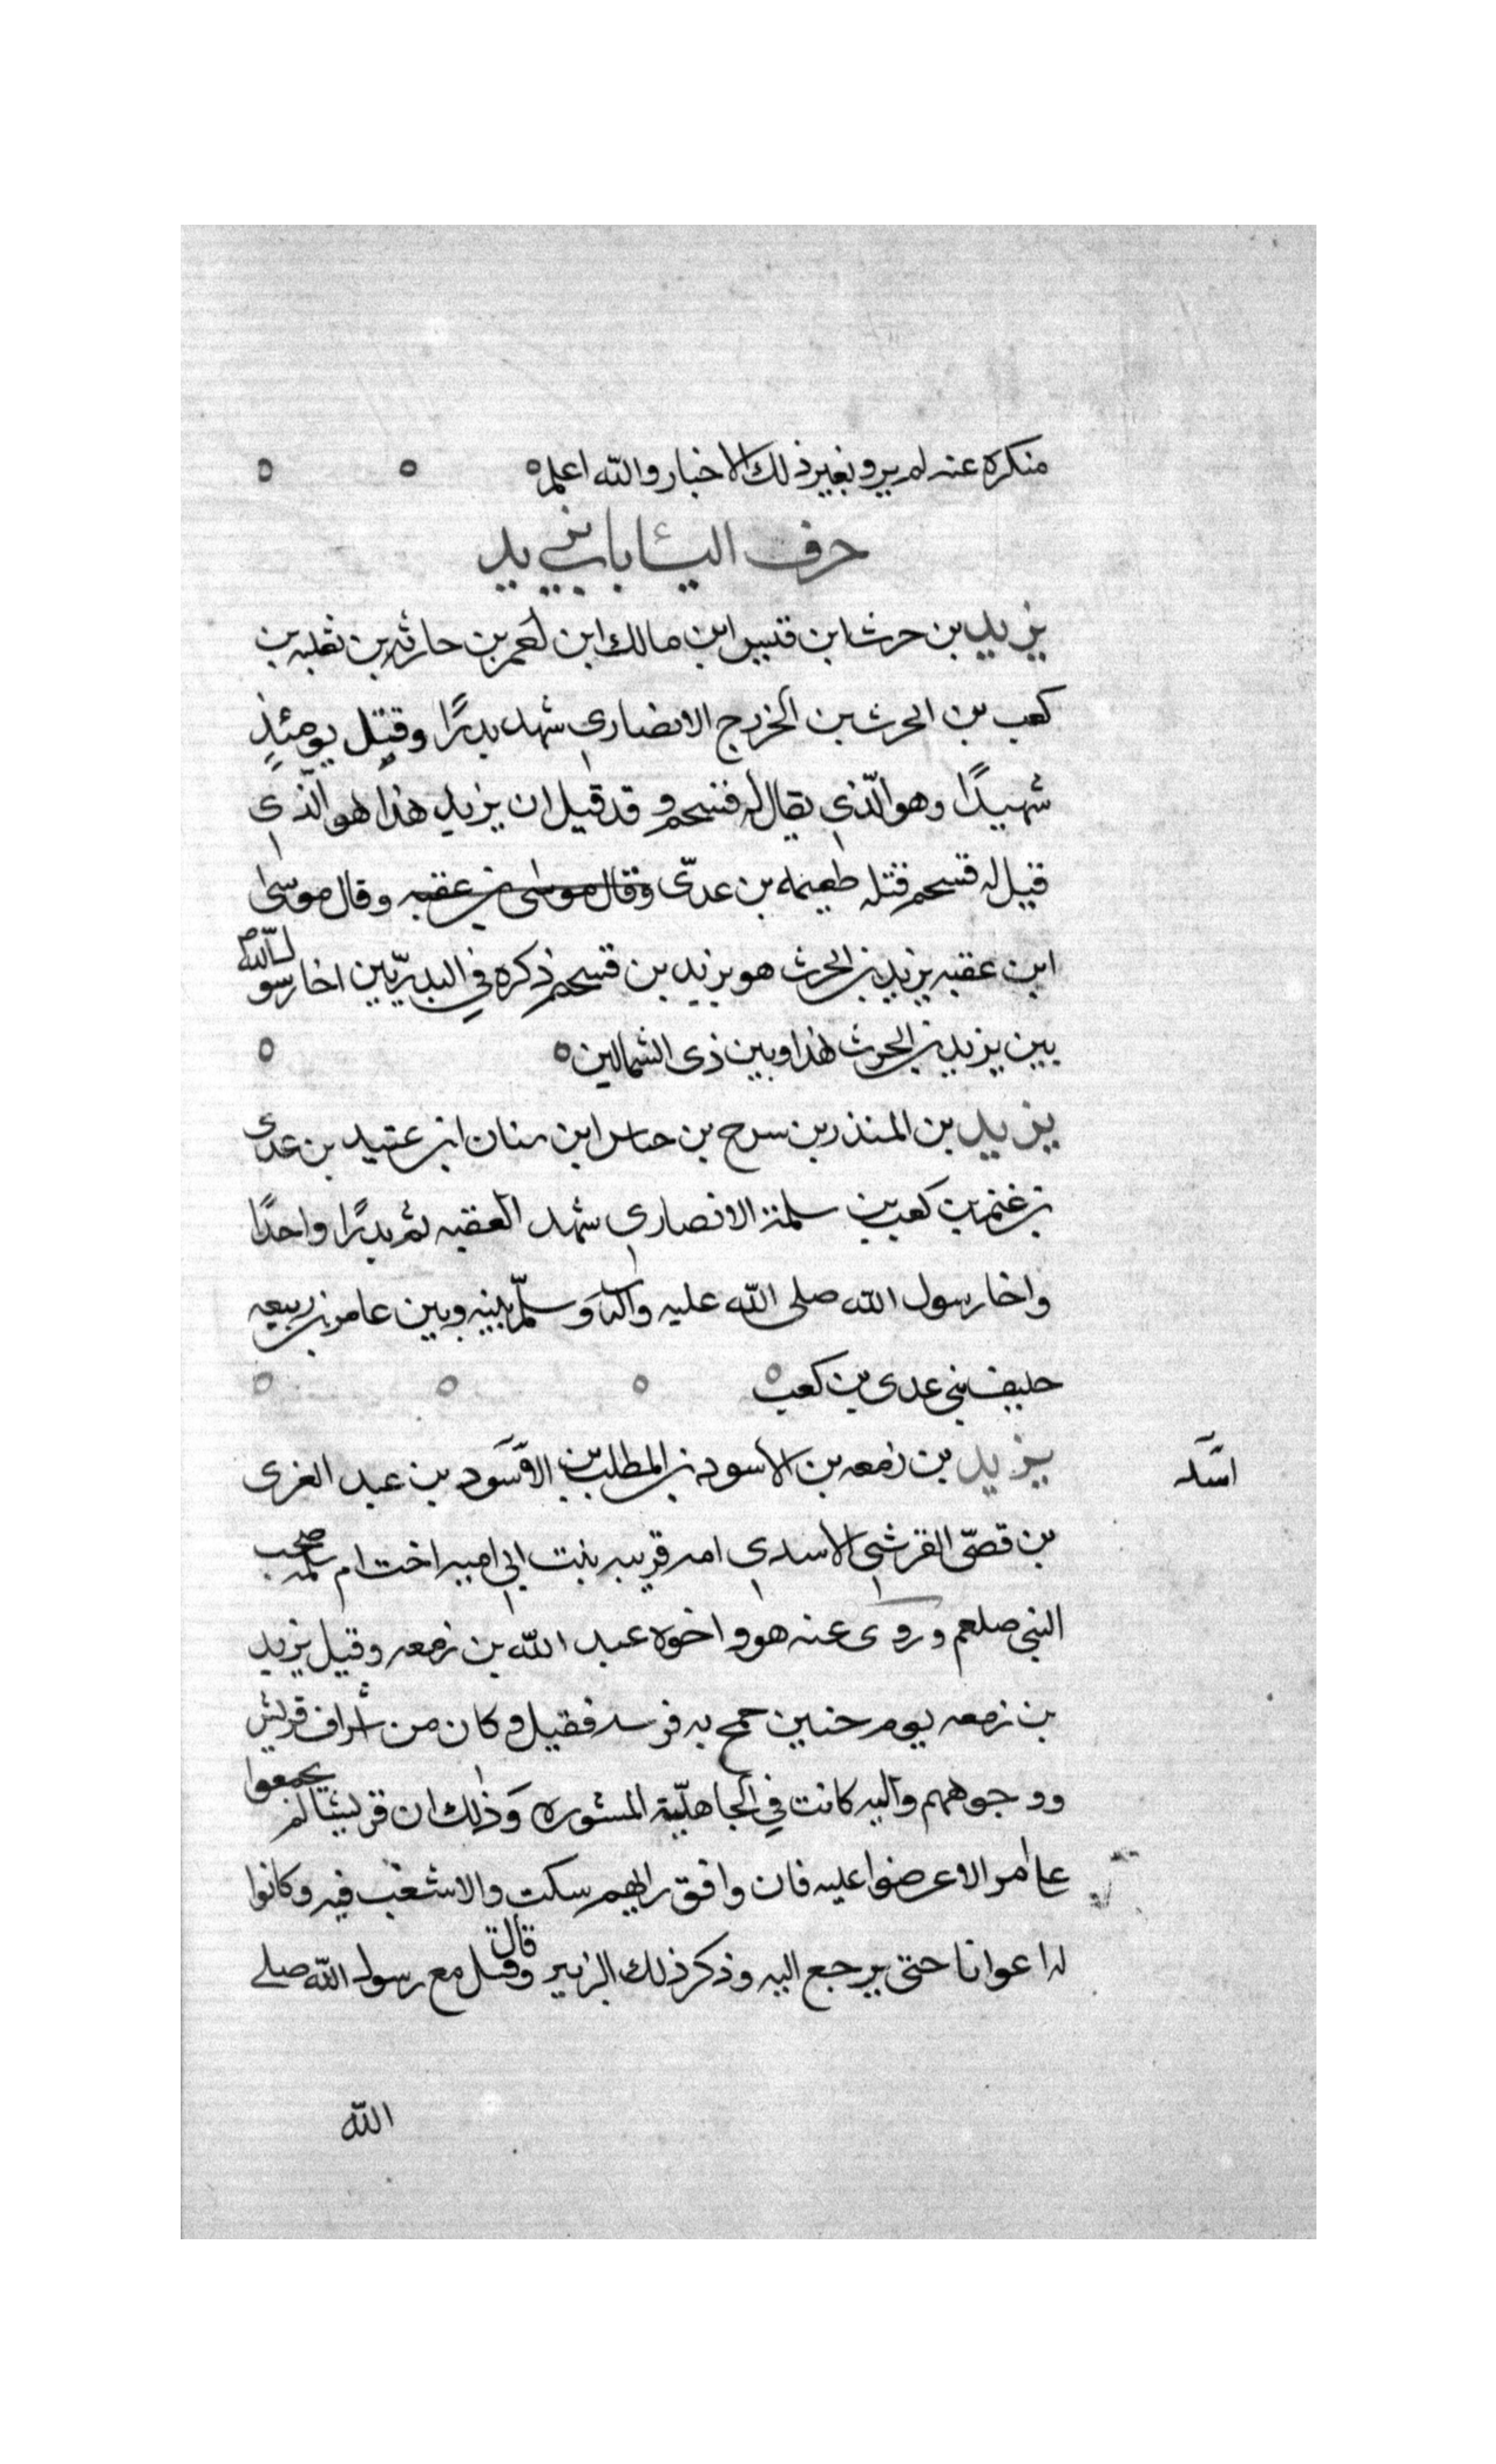 منكرة عنه لم يرو بغير ذلك الاخبار والله اعلم ه ه ه
حرف اليٓاء باب يزيد
يزيد بن حرث ابن قيس ابن مالك ابن احمر بن حارثه بن ثعلبه بن
كعب بن الحرث بن الخزرج الانصاري شهد بدرًا وقتل يومئذٍ
شهيدًا وهو الّذي يقال له فسحم وقد قيل ان يزيد هذا هو الّذي
قيل له قسحم قتله طعيمه بن عدىّ وقال موسى بن عقبه وقال موسى
ابن عقبه يزيد بن الحرث هو يزيد بن قسحم ذكره في البدريّين اخا رسول الله ص
بين يزيد بن الحرث هذا وبين ذى الشمالين ه ه
يزيد بن المنذر بن سرح بن خناس ابن سنان ابن عتيد بن عدى
بن غنم بن كعب بن سلمة الانصاري شهد العقبه ثم بدرًا واحدًا
واخا رسول الله صلى الله عليه وآله وسلّم بينه وبين عامر بن ربيعه
حليف بني عدى بن كعب ه ه ه ه
اسد
يزيد بن زمعه بن الاسود بن المطلب بن الاسود بن عبد العزى
بن قصىّ القرشي الاسدي امه قريبه بنت ابي اميه اخت ام سلمه
النبي صلعم وروى عنه هو واخوه عبد الله بن زمعه وقيل يزيد
بن زمعه يوم حنين جمح به فرسه فقيل وكان من اشراف قريش
ووجوههم واليه كانت في الجاهليّة المشوره وذلك ان قريشا لم يجمعوا
على امر الا عرضوا عليه فان وافق رايهم سكت والا شغب فيه وكانوا
له اعوانا حتى يرجع اليه وذكر ذلك الزبير قال وقتل مع رسول الله صلى
الله